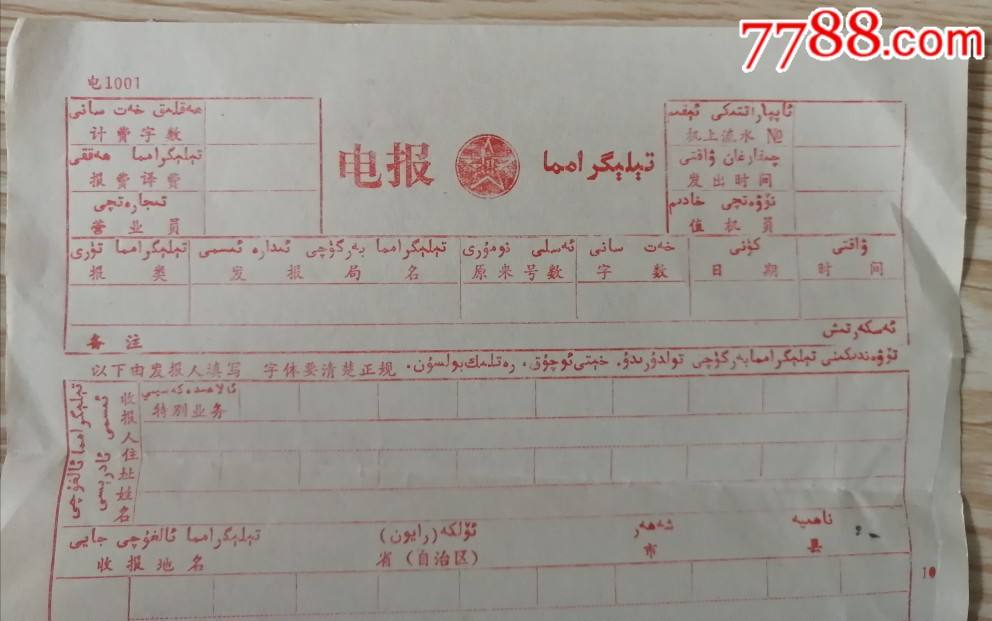 7788.com
电1001
ھەقلىق خەت سانى
计费字数
تېلېگرامما ھەققى
报费译费
تىجارەتچى
营业员
电报
تېلېگرامما
ئاپپاراتتىكى ئېقىم
机上流水 №
چىقارغان ۋاقتى
发出时间
نۆۋەتچى خادىم
值机员
تېلېگرامما تۈرى
报类
تېلېگرامما بەرگۈچى ئىدارە ئىسمى
发报局名
ئەسلى نومۇرى
原来号数
خەت سانى
字数
كۈنى
日期
ۋاقتى
时间
备注
ئەسكەرتىش
以下由发报人填写 字体要清楚正规.
تۆۋەندىكىنى تېلېگراممابەرگۈچى تولدۇرىدۇ. خېتى ئوچۇق، رەتلىك بولسۇن.
تېلېگرامما ئالغۇچى
ئىسمى ئادرېسى
收报人住址姓名
特别业务
تېلېگرامما ئالغۇچى جايى
收报地名
ئۆلكە (رايون)
省 (自治区)
شەھەر
市
ناھىيە
县
10